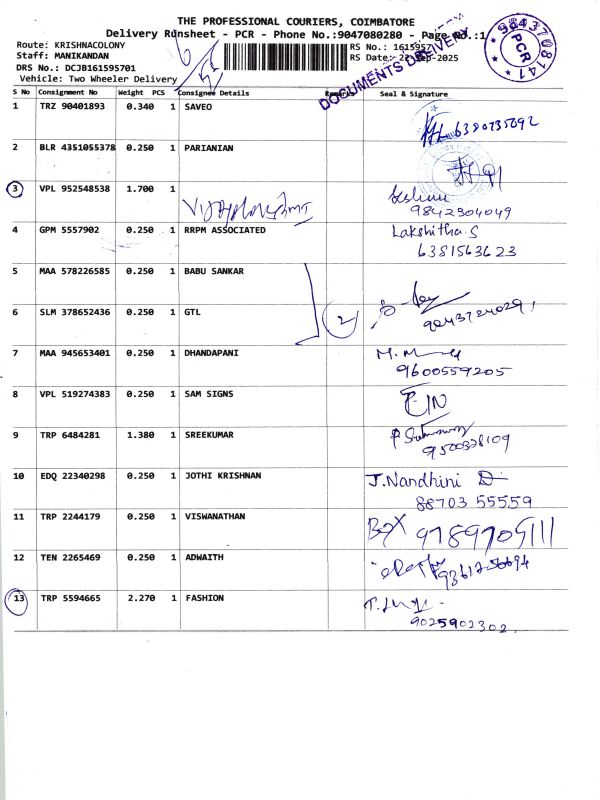 THE PROFESSIONAL COURIERS, COIMBATORE
Delivery Runsheet - PCR - Phone No.:9047080280 - Page No.:1
Route: KRISHNACOLONY
RS No.: 1615957
Staff: MANIKANDAN
RS Date: 22-Sep-2025
DRS No.: DCJB161595701
Vehicle: Two Wheeler Delivery
DOCUMENTS DELIVERY
9843708141
PCR
S No Consignment No Weight PCS Consignee Details Remarks Seal & Signature
1 TRZ 90401893 0.340 1 SAVEO
6380735692
2 BLR 4351055378 0.250 1 PARIANIAN
3 VPL 952548538 1.700 1
9842304049
4 GPM 5557902 0.250 1 RRPM ASSOCIATED Lakshitha.S
6381563623
5 MAA 578226585 0.250 1 BABU SANKAR
2
6 SLM 378652436 0.250 1 GTL
7 MAA 945653401 0.250 1 DHANDAPANI
9600559205
8 VPL 519274383 0.250 1 SAM SIGNS
9 TRP 6484281 1.380 1 SREEKUMAR
9500378109
10 EDQ 22340298 0.250 1 JOTHI KRISHNAN J.Nandhini
88703 55559
11 TRP 2244179 0.250 1 VISWANATHAN
9789705111
12 TEN 2265469 0.250 1 ADWAITH
13 TRP 5594665 2.270 1 FASHION
9025902302